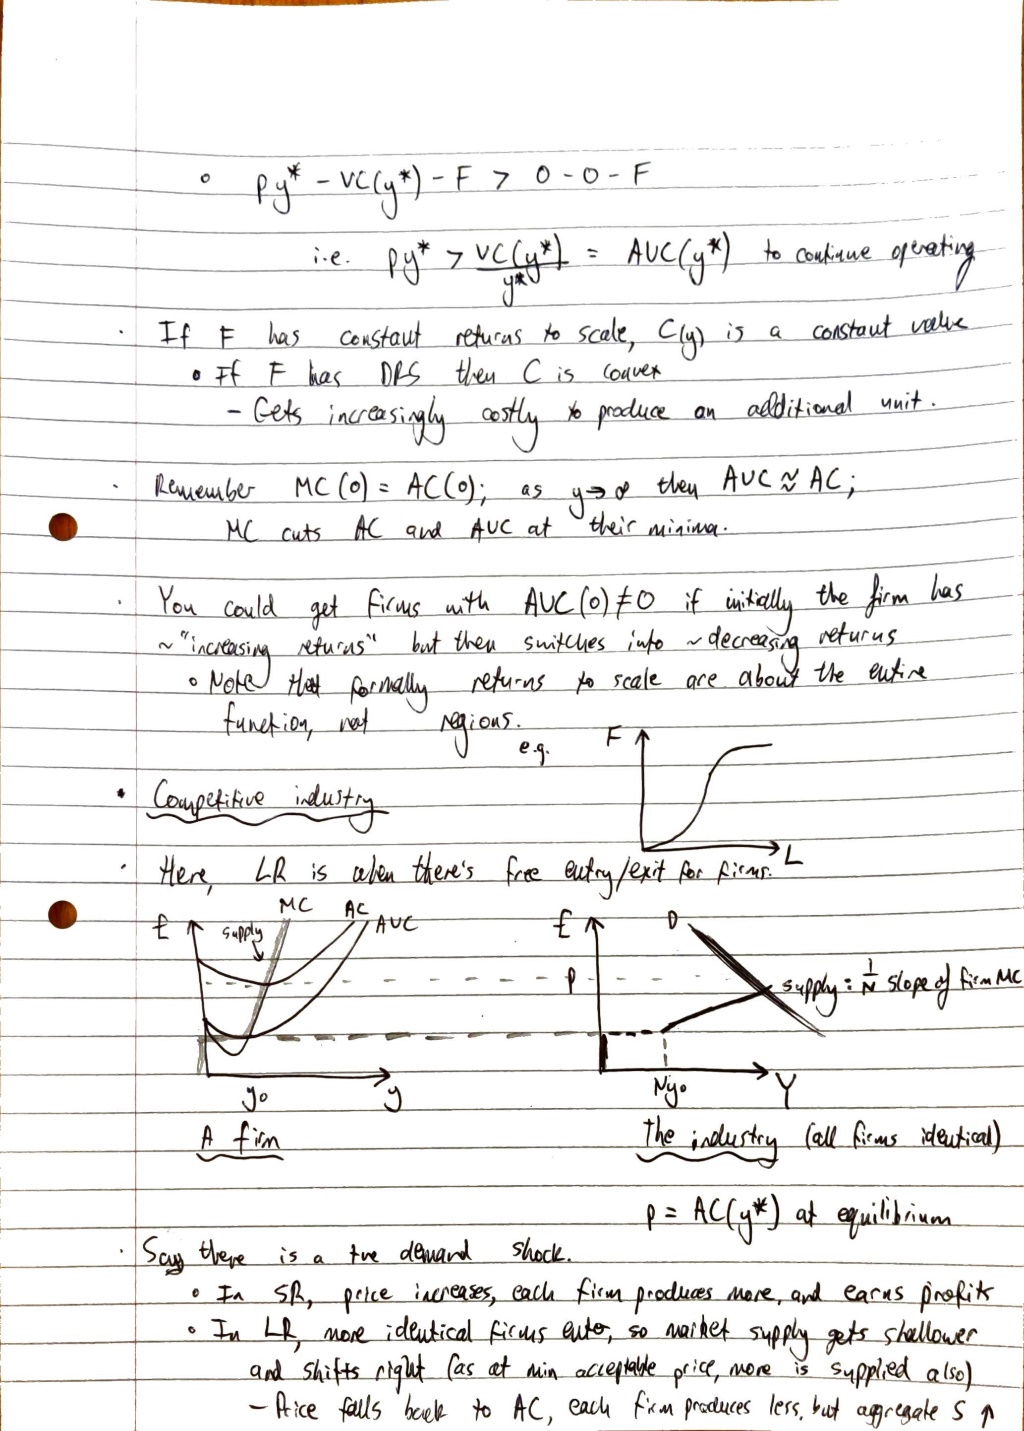 ◦ py* - VC(y*) - F > 0 - 0 - F
i.e. py* > VC(y*)/y* = AVC(y*) to continue operating
· If F has constant returns to scale, C(y) is a constant value
• If F has DRS then C is convex
- Gets increasingly costly to produce an additional unit.
· Remember MC(0) = AC(0); as y→∞ then AVC ≈ AC;
MC cuts AC and AVC at their minima.
· You could get firms with AVC(0) ≠ 0 if initially the firm has
~"increasing returns" but then switches into ~decreasing returns
◦ Note that formally returns to scale are about the entire
function, not regions.
e.g.
F
L
• Competitive industry
· Here, LR is when there's free entry/exit for firms.
£
supply
MC
AC
AVC
y0
y
A firm
£
D
p
supply: 1/N slope of firm MC
Ny0
Y
The industry (all firms identical)
p = AC(y*) at equilibrium
· Say there is a +ve demand shock.
• In SR, price increases, each firm produces more, and earns profits
• In LR, more identical firms enter, so market supply gets shallower
and shifts right (as at min acceptable price, more is supplied also)
- Price falls back to AC, each firm produces less, but aggregate S ↑